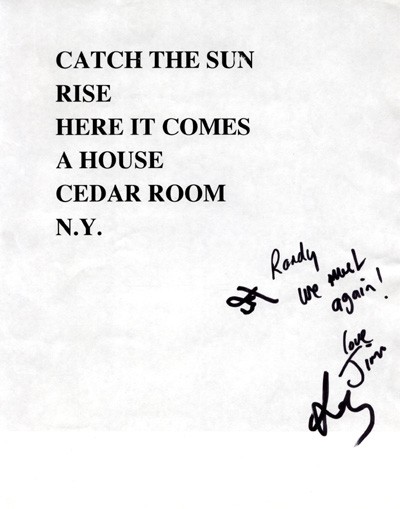 CATCH THE SUN
RISE
HERE IT COMES
A HOUSE
CEDAR ROOM
N.Y.
Randy
we must
again!
love
Jimi